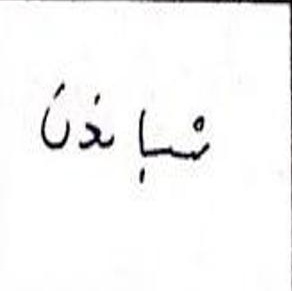 شباندن